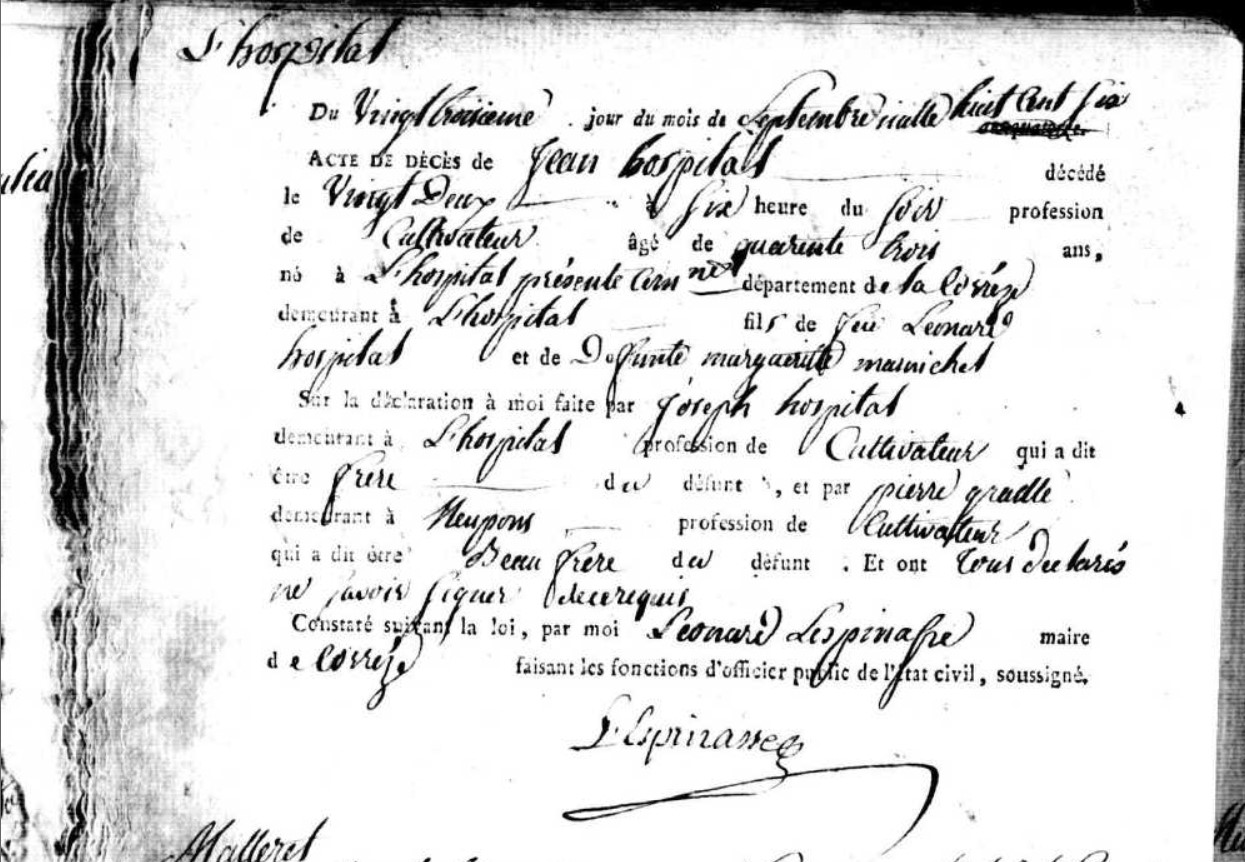 L'hospital
Du Vingt troisieme jour du mois de Septembre mille huit Cent Six
ACTE DE DÉCÈS de Jean hospital décédé
le Vingt Deux à Six heure du Soir profession
de Cultivateur âgé de quarente trois ans,
né à L'hospital présente Comne département de la Corréze
demeurant à L'hospital fils de feu Leonard
hospital et de Defunte margueritte
Sur la déclaration à moi faite par joseph hospital
demeurant à L'hospital profession de Cultivateur qui a dit
être frere du défunt, et par pierre
demeurant à profession de Cultivateur
qui a dit être Beau frere du défunt. Et ont Tous declarés
ne Savoir Signer de ce requis
Constaté suivant la loi, par moi Leonard Lespinasse maire
de Corréze faisant les fonctions d'officier public de l'état civil, soussigné.
LEspinasse
Malleret